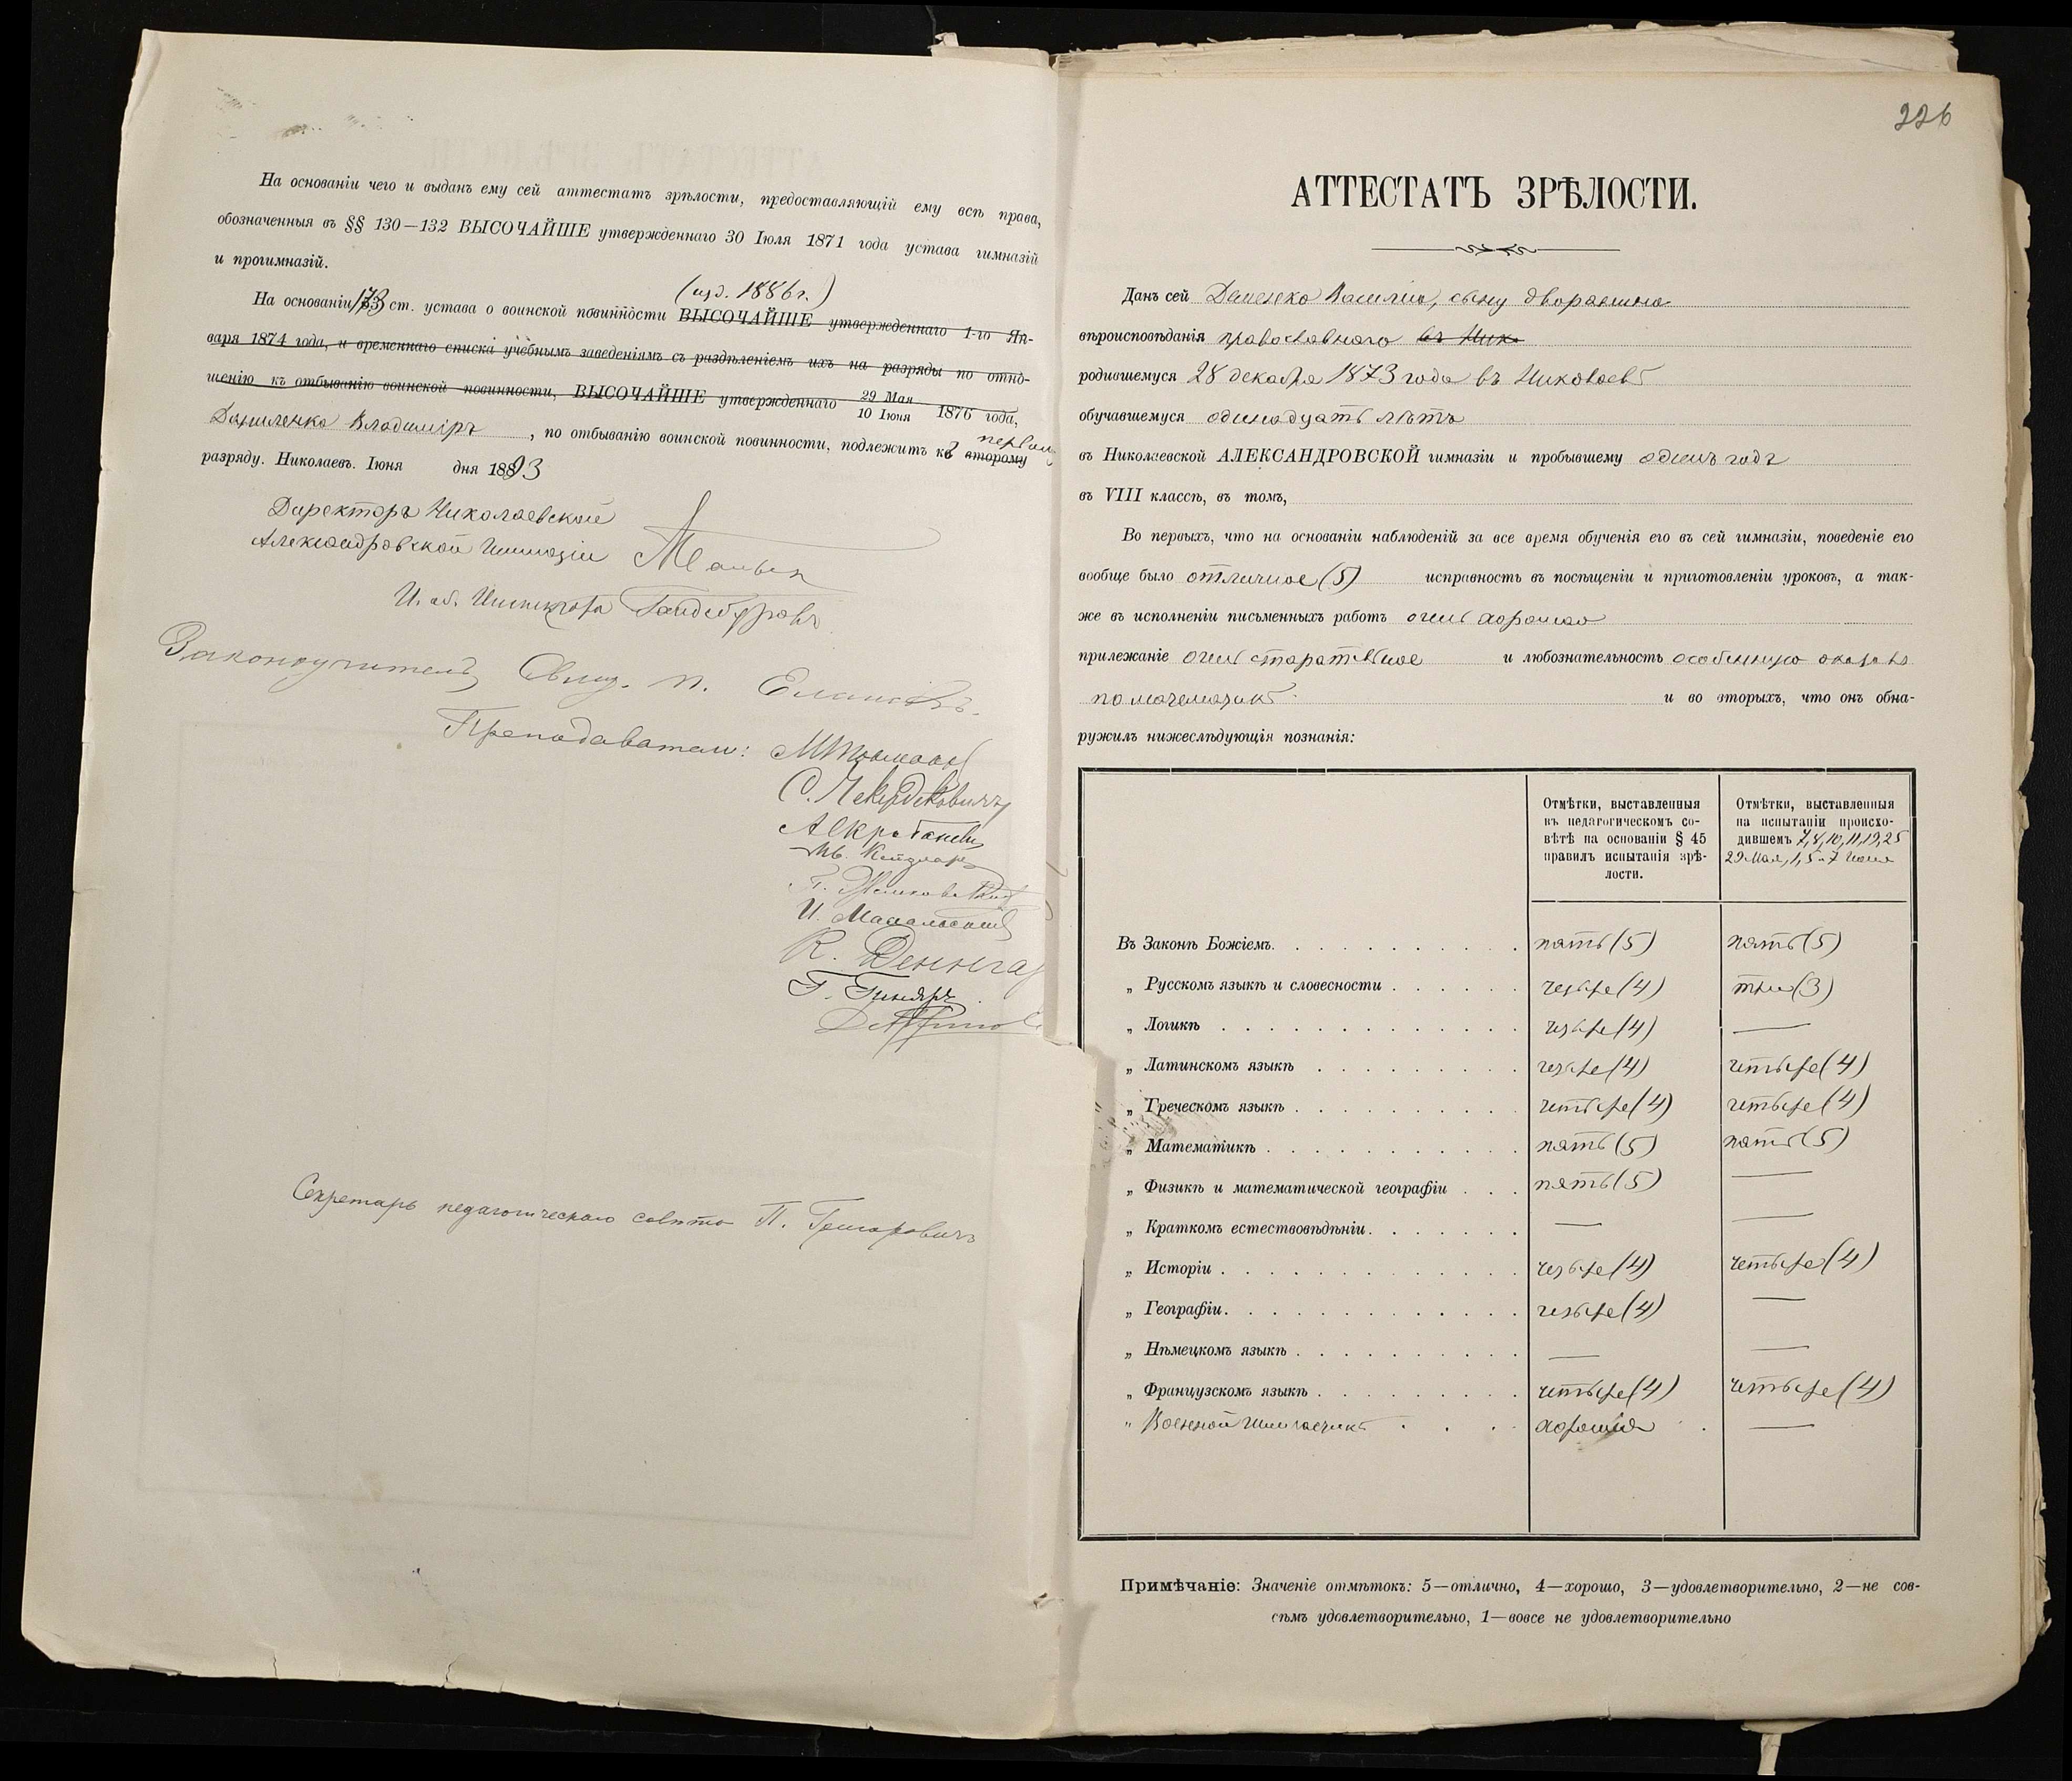 На основаніи чего и выданъ ему сей аттестатъ зрѣлости, предоставляющій ему всѣ права,
обозначенныя въ §§ 130—132 ВЫСОЧАЙШЕ утвержденнаго 30 Іюля 1871 года устава гимназій
и прогимназій.
(изд. 1886 г.)
На основаніи 173 ст. устава о воинской повинности ВЫСОЧАЙШЕ утвержденнаго 1-го Ян-
варя 1874 года, и временнаго списка учебнымъ заведеніямъ съ раздѣленіемъ ихъ на разряды по отно-
шенію къ отбыванію воинской повинности, ВЫСОЧАЙШЕ утвержденнаго 29 Мая 10 Іюня 1876 года,
Даниленко Владиміръ, по отбыванію воинской повинности, подлежитъ къ второму
разряду. Николаевъ. Іюня дня 1893
Директоръ Николаевской
Александровской Гимназіи
И. об. Инспектора
Законоучитель Свящ. П. Еланскій
Преподаватели:
К. Деннга
Секретарь педагогическаго совѣта П. Григоровичъ
226
АТТЕСТАТЪ ЗРѢЛОСТИ.
Данъ сей Деменко Василію, сыну дворянина
вѣроисповѣданія православнаго въ Ник
родившемуся 28 декабря 1873 года въ Николаевѣ
обучавшемуся одинадцать лѣтъ
въ Николаевской АЛЕКСАНДРОВСКОЙ гимназіи и пробывшему одинъ годъ
въ VIII классѣ, въ томъ,
Во первыхъ, что на основаніи наблюденій за все время обученія его въ сей гимназіи, поведеніе его
вообще было отличное (5) исправность въ посѣщеніи и приготовленіи уроковъ, а так-
же въ исполненіи письменныхъ работъ очень хорошая
прилежаніе очень старательное и любознательность особенную оказалъ
по математикѣ и во вторыхъ, что онъ обна-
ружилъ нижеслѣдующія познанія:
Отмѣтки, выставленныя
въ педагогическомъ со-
вѣтѣ на основаніи § 45
правилъ испытанія зрѣ-
лости.
Отмѣтки, выставленныя
на испытаніи происхо-
дившемъ 7, 8, 10, 11, 19, 25
29 Мая, 1, 5 и 7 Іюня
Въ Законѣ Божіемъ. пять (5) пять (5)
„ Русскомъ языкѣ и словесности четыре (4) три (3)
„ Логикѣ четыре (4) —
„ Латинскомъ языкѣ четыре (4) четыре (4)
„ Греческомъ языкѣ четыре (4) четыре (4)
„ Математикѣ пять (5) пять (5)
„ Физикѣ и математической географіи пять (5) —
„ Краткомъ естествовѣдѣніи. — —
„ Исторіи четыре (4) четыре (4)
„ Географіи. четыре (4) —
„ Нѣмецкомъ языкѣ — —
„ Французскомъ языкѣ четыре (4) четыре (4)
„ Военной Гимнастикѣ хорошія —
Примѣчаніе: Значеніе отмѣтокъ: 5—отлично, 4—хорошо, 3—удовлетворительно, 2—не сов-
сѣмъ удовлетворительно, 1—вовсе не удовлетворительно